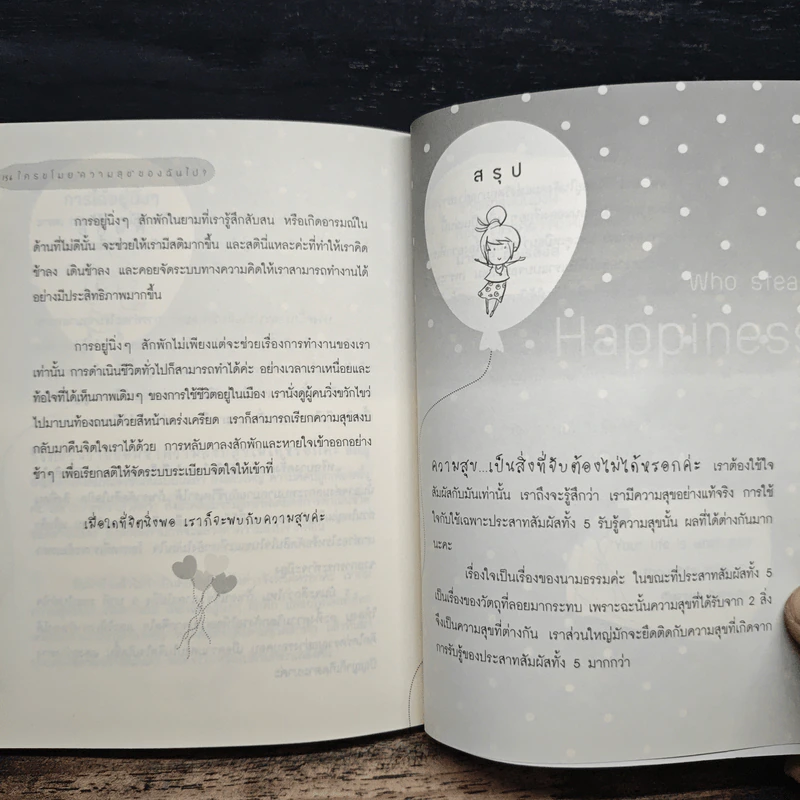 ใครขโมยความสุขของฉันไป?
การอยู่นิ่งๆ สักพักในยามที่เรารู้สึกสับสน หรือเกิดอารมณ์ใน
ด้านที่ไม่ดีนั้น จะช่วยให้เรามีสติมากขึ้น และสตินี่แหละค่ะที่ทำให้เราคิด
ช้าลง เดินช้าลง และคอยจัดระบบทางความคิดให้เราสามารถทำงานได้
อย่างมีประสิทธิภาพมากขึ้น
การอยู่นิ่งๆ สักพักไม่เพียงแต่จะช่วยเรื่องการทำงานของเรา
เท่านั้น การดำเนินชีวิตทั่วไปก็สามารถทำได้ค่ะ อย่างเวลาเราเหนื่อยและ
ท้อใจที่ได้เห็นภาพเดิมๆ ของการใช้ชีวิตอยู่ในเมือง เรานั่งดูผู้คนวิ่งขวักไขว่
ไปมาบนท้องถนนด้วยสีหน้าเคร่งเครียด เราก็สามารถเรียกความสุขสงบ
กลับมาคืนจิตใจเราได้ด้วย การหลับตาลงสักพักและหายใจเข้าออกอย่าง
ช้าๆ เพื่อเรียกสติให้จัดระบบระเบียบจิตใจให้เข้าที่
เมื่อใดที่จิตนิ่งพอ เราก็จะพบกับความสุขค่ะ
สรุป
Who stea
Happiness
ความสุข...เป็นสิ่งที่จับต้องไม่ได้หรอกค่ะ เราต้องใช้ใจ
สัมผัสกับมันเท่านั้น เราถึงจะรู้สึกว่า เรามีความสุขอย่างแท้จริง การใช้
ใจกับใช้เฉพาะประสาทสัมผัสทั้ง 5 รับรู้ความสุขนั้น ผลที่ได้ต่างกันมาก
นะคะ
เรื่องใจเป็นเรื่องของนามธรรมค่ะ ในขณะที่ประสาทสัมผัสทั้ง 5
เป็นเรื่องของวัตถุที่ลอยมากระทบ เพราะฉะนั้นความสุขที่ได้รับจาก 2 สิ่ง
จึงเป็นความสุขที่ต่างกัน เราส่วนใหญ่มักจะยึดติดกับความสุขที่เกิดจาก
การรับรู้ของประสาทสัมผัสทั้ง 5 มากกว่า